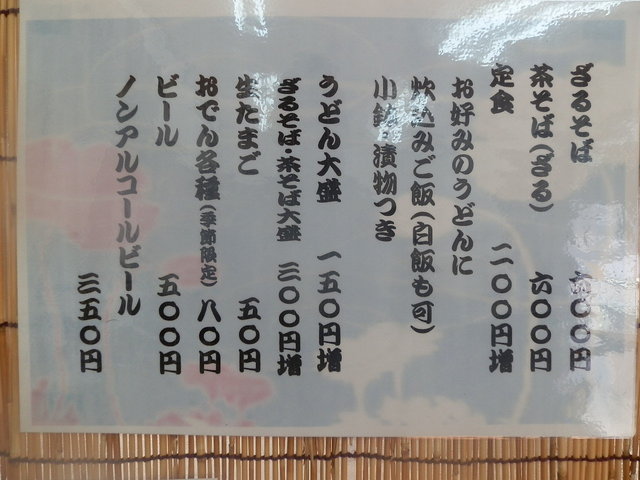 ざるそば 六〇〇円
茶そば(ざる) 六〇〇円
定食 二〇〇円増
お好みのうどんに
炊込みご飯(白飯も可)
小鉢・漬物つき
うどん大盛 一五〇円増
ざるそば・茶そば大盛 三〇〇円増
生たまご 五〇円
おでん各種(季節限定) 八〇円
ビール 五〇〇円
ノンアルコールビール
三五〇円